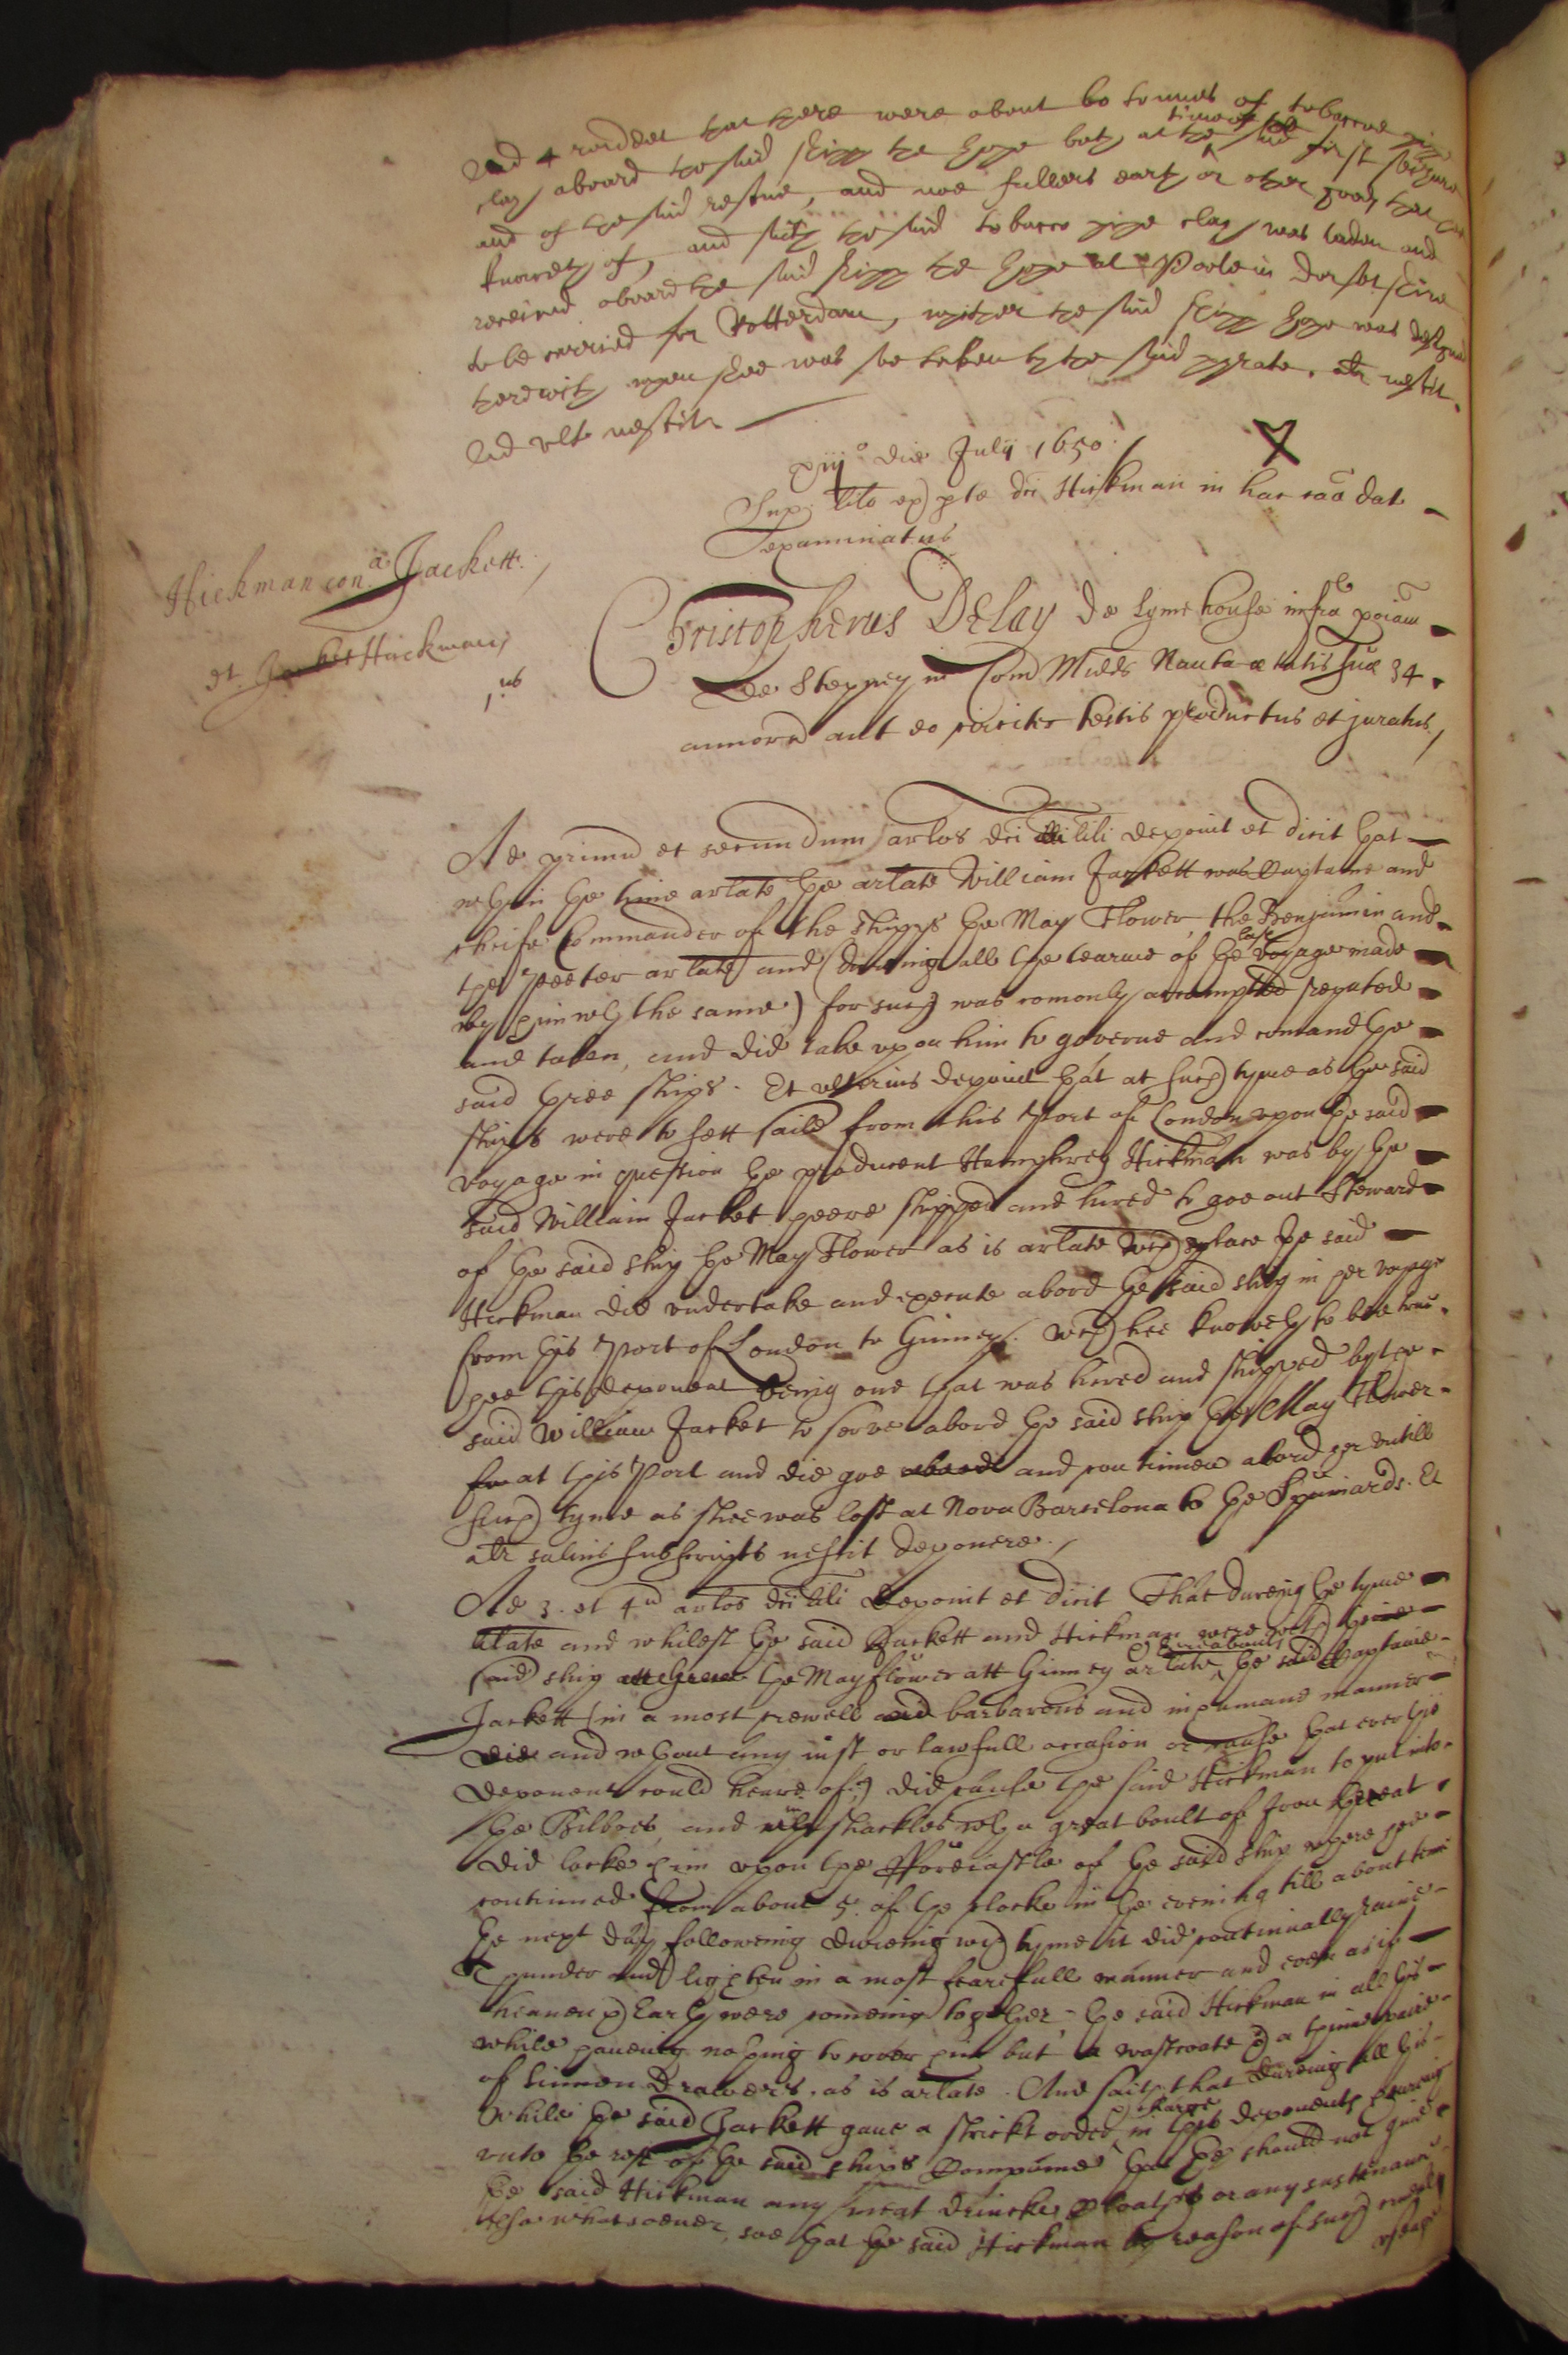 Ad 4 reddet that there were about 60 tonnes of tobaccoe pipe
clay aboard the said shipp the Hope both at the time of the said first seizure
and of the said rescue, and noe fullers earth or other goods that hee
knoweth of, and saith the said tobacco pipe clay was laden and
received aboard the said shipp the Hope at Poole in Dorsetshire
to be carried for Rotterdam, whither the said shipp Hope was designed
therewith when shee was soe taken by the said pyrate. alr nescit.
Ad ult nescit.
xiij° die July 1650.
Sup. lito ex pte dci Hickman in hac caa dat
examinatus
Hickman con.a Jackett.
et Jacket Hickman
1.us
Christopherus Delay de Lymehouse infra poiam
de Stepney in Com Midds Nauta ætatis suæ 34.
annorum aut eo circiter testis productus et juratus,
Ad primum et secundum artos dci lili deponit et dicit that
wthin the time arlate the arlate William Jackett was Captaine and
cheife Commander of the shipps the May Flower, the Benjamin and
the Peeter arlate and (during all the tearme of the late voyage made
by him wth the same) for such was comonly accompted reputed
and taken, and did take upon him to governe and comand the
said three ships. Et ulterius deponit that at such tyme as the said
ships were to sett saile from this Port of London upon the said
voyage in question the producent Humphrey Hickman was by the
said William Jacket heere shipped and hired to goe out Steward
of the said ship the May Flower as is arlate wch place the said
Hickman did undertake and execute abord the said ship in her voyage
from this Port of London to Ginney. wch hee knoweth to bee true.
hee this deponent being one that was hired and shipped by the
said William Jacket to serve abord the said ship the May Flower
at this Port and did goe and continued abord her untill
such tyme as shee was lost at Nova Barselona to the Spaniards. Et
alr salvis subscriptis nescit deponere.
Ad 3. et 4um artos dci lili deponit et dicit That dureing the tyme
arlate and whilest the said Jackett and Hickman were with theire
said ship the Mayflower att Ginney arlate or thereabouts the said Captaine
Jackett (in a most crewell and barbarous and inhumane manner
did and wthout any just or lawfull occasion or cause that ever this
deponent could heare of,) did cause the said Hickman to put into
the Bilboes, and in shackles wth a great boult of Iron thereat
did locke him upon the fforecastle of the said ship where hee
continued from about 5. of the clocke in the evening till about tenn
the next day following dureing wch tyme it did continually raine
thunder and lighten in a most fearefull manner and even as if
heaven & Earth were comeing together, the said Hickman in all this
while haveing nothing to cover him but a wastcoate & a thinne paire
of linnen Drawers. as is arlate. And saith that dureing all this
while the said Jackett gave a strickt order & charge in this deponents heareing
unto the rest of the said ships Companie that they should not give
the said Hickman any meat drincke cloathes or any sustenance
else whatsoever, soe that the said Hickman by reason of such cruell
usage